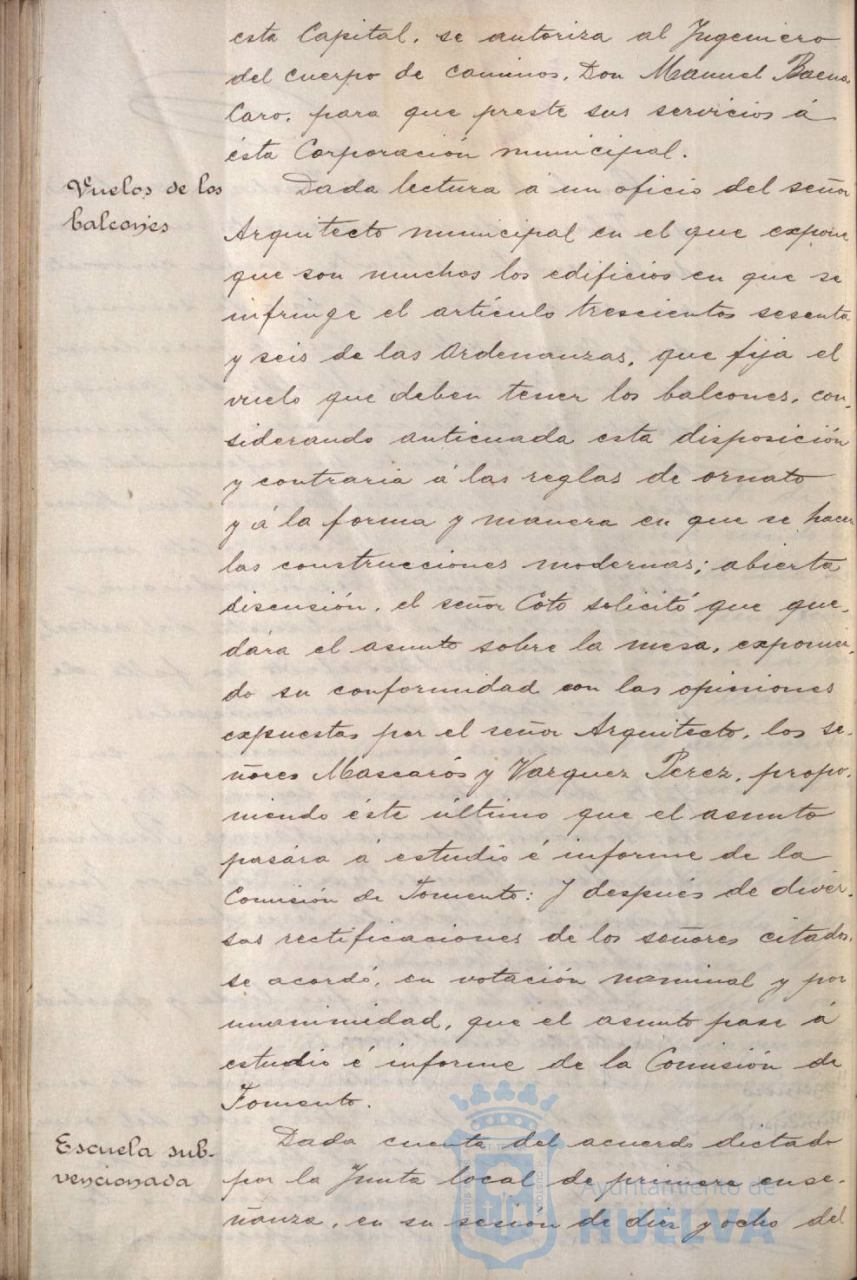 esta Capital, se autoriza al Ingeniero
del cuerpo de caminos, Don Manuel Baena
Caro, para que preste sus servicios á
ésta Corporación municipal.
Vuelos de los
balcones
Dada lectura á un oficio del señor
Arquitecto municipal en el que expone
que son muchos los edificios en que se
infringe el artículo trescientos sesenta
y seis de las Ordenanzas, que fija el
vuelo que deben tener los balcones, con-
siderando anticuada esta disposición
y contraria á las reglas de ornato
y á la forma y manera en que se hacen
las construcciones modernas; abierta
discusión, el señor Coto solicitó que que-
dára el asunto sobre la mesa, exponien-
do su conformidad con las opiniones
expuestas por el señor Arquitecto, los se-
ñores Mascarós y Vazquez Perez, propo-
niendo éste último que el asunto
pasára á estudio é informe de la
Comisión de Fomento: Y después de diver-
sas rectificaciones de los señores citados,
se acordó, en votación nominal y por
unanimidad, que el asunto pase á
estudio é informe de la Comisión de
Fomento.
Escuela sub-
vencionada
Dada cuenta del acuerdo dictado
por la Junta local de primera ense-
ñanza, en su sesión de diez y ocho del
Ayuntamiento de
HUELVA